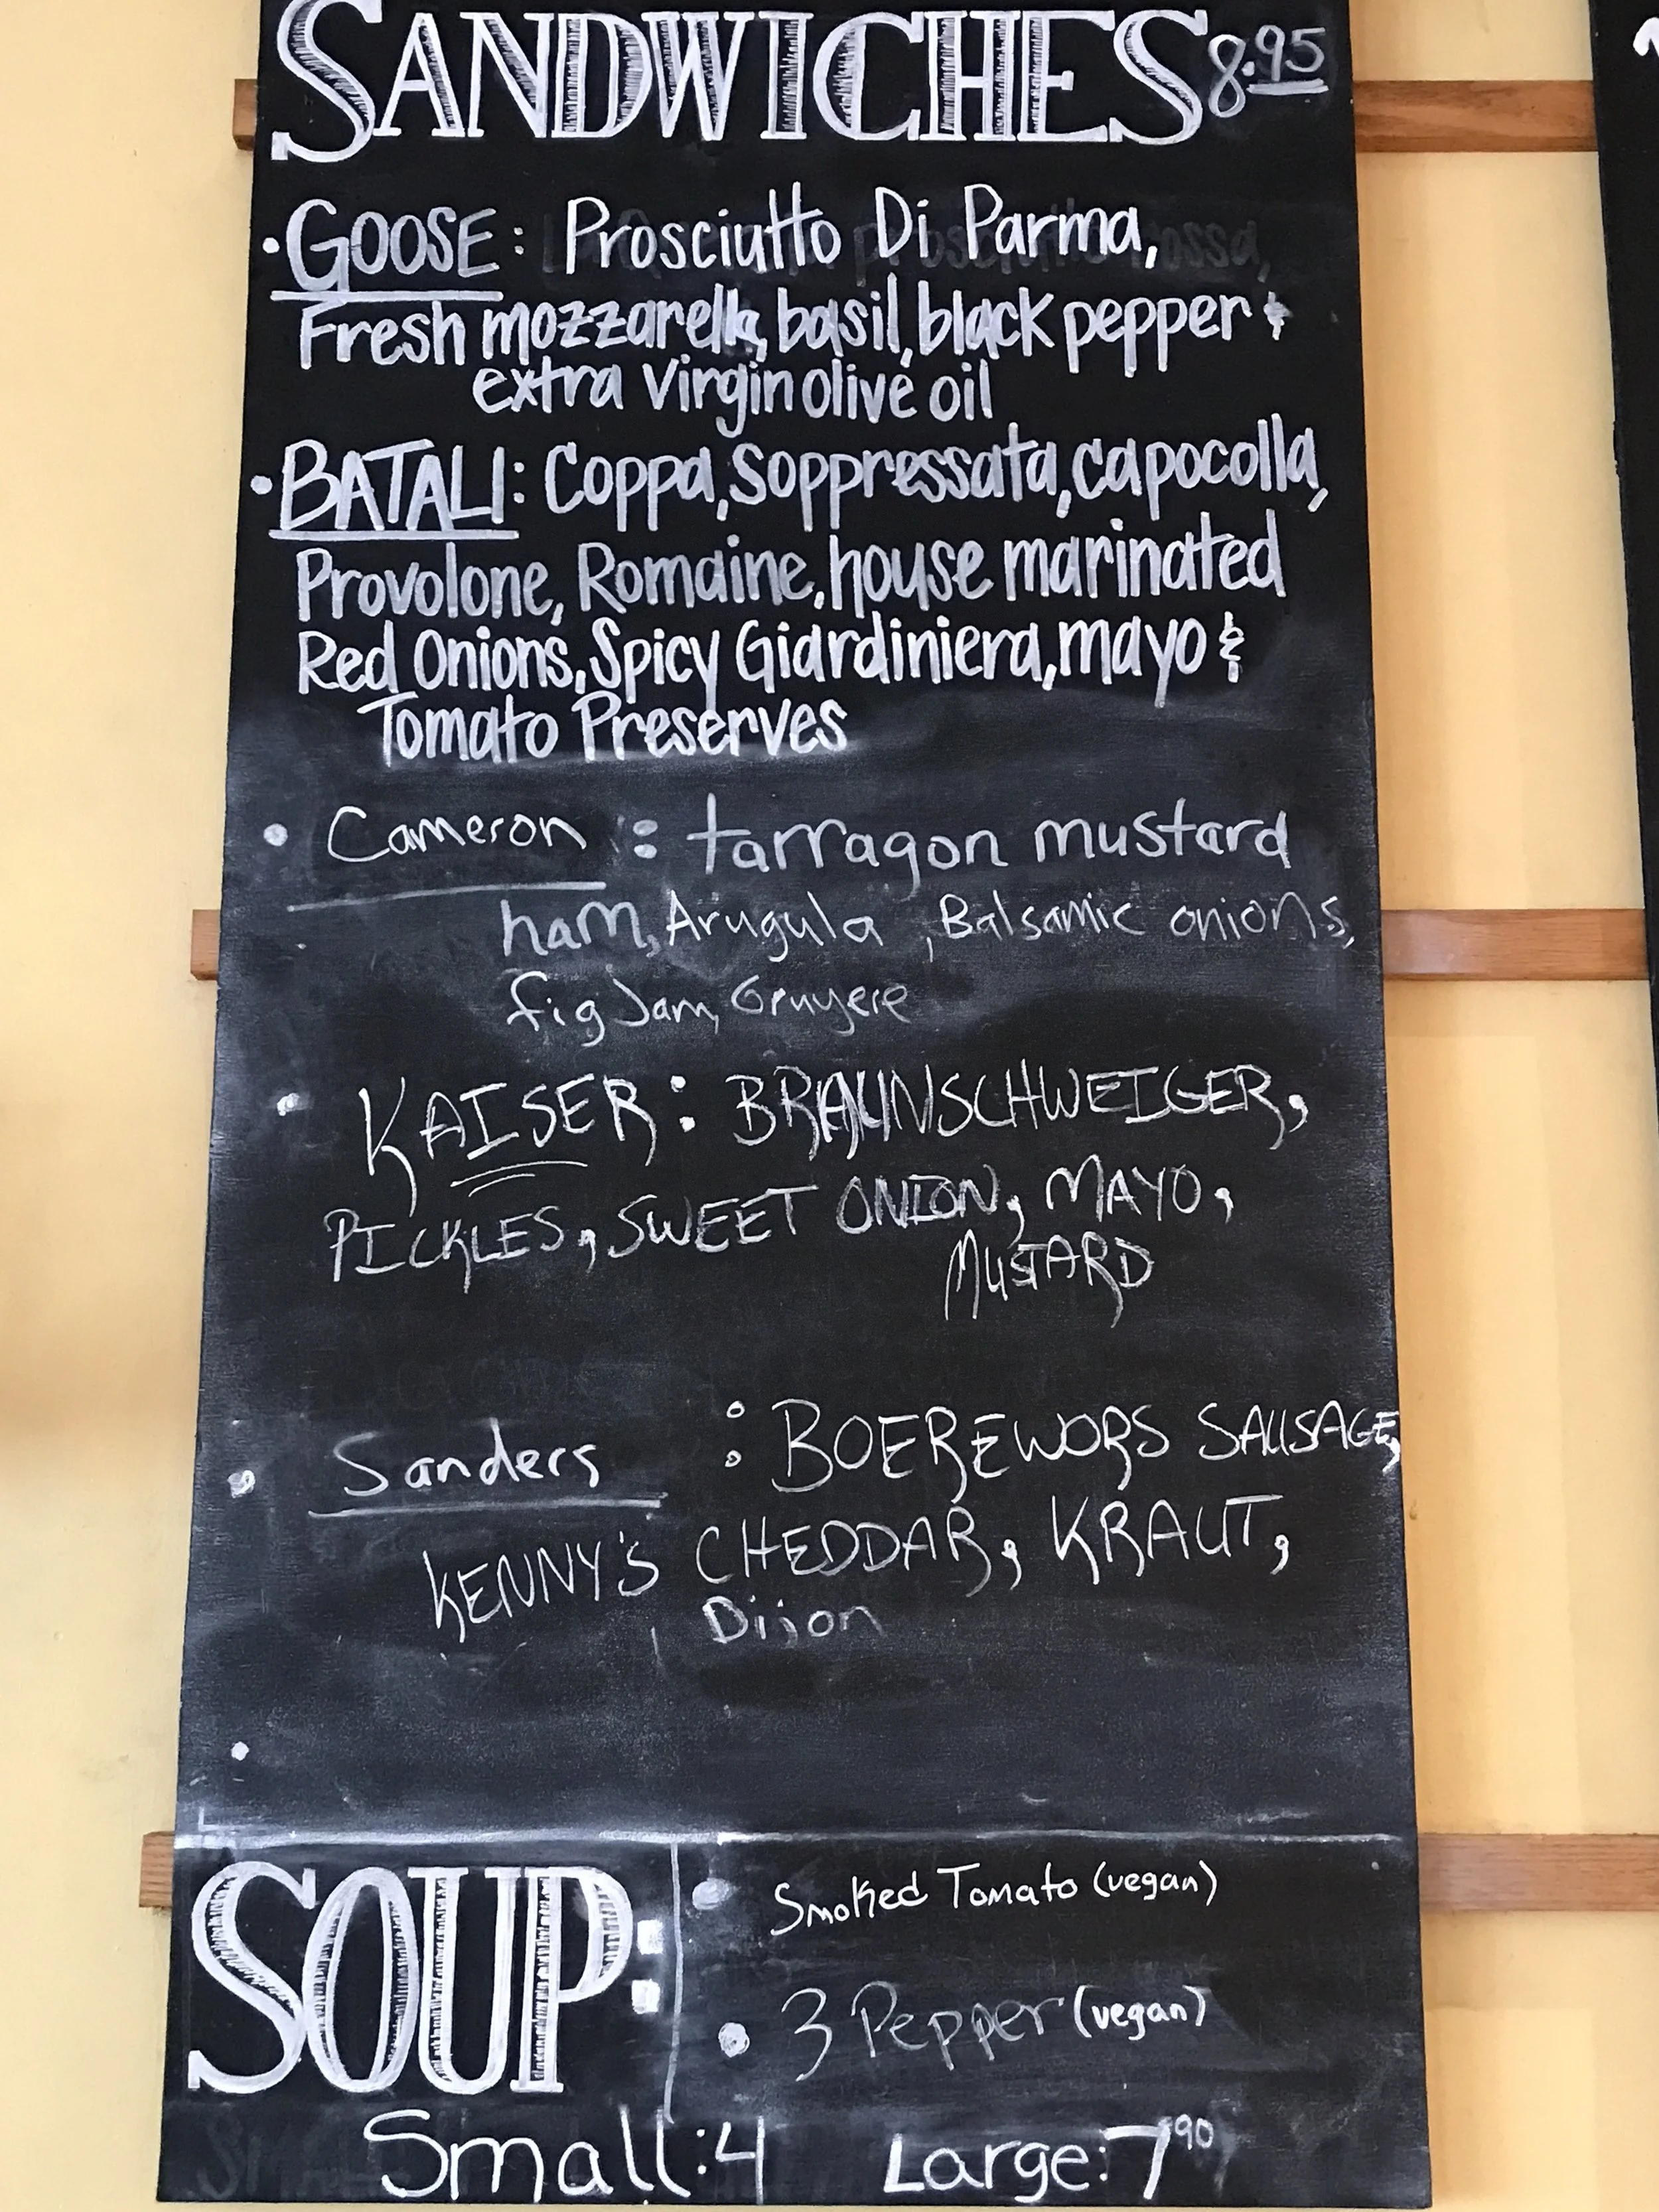 SANDWICHES 8.95
• GOOSE: Prosciutto Di Parma,
Fresh mozzarella, basil, black pepper &
extra virgin olive oil
• BATALI: Coppa, Soppressata, capocolla,
Provolone, Romaine, house marinated
Red Onions, Spicy Giardiniera, mayo &
Tomato Preserves
• Cameron : tarragon mustard
ham, Arugula, Balsamic onions,
fig Jam, Gruyere
• KAISER: BRAUNSCHWEIGER,
PICKLES, SWEET ONION, MAYO,
MUSTARD
• Sanders : BOEREWORS SAUSAGE,
KENNY'S CHEDDAR, KRAUT,
Dijon
•
SOUP:
• Smoked Tomato (vegan)
• 3 Pepper (vegan)
Small: 4 Large: 7 90